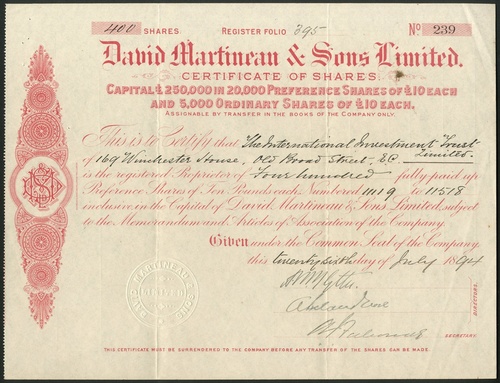 400 SHARES REGISTER FOLIO 395 No 239
David Martineau & Sons Limited.
CERTIFICATE OF SHARES.
CAPITAL £250,000 IN 20,000 PREFERENCE SHARES OF £10 EACH
AND 5,000 ORDINARY SHARES OF £10 EACH.
ASSIGNABLE BY TRANSFER IN THE BOOKS OF THE COMPANY ONLY.
This is to Certify that The International Investment Trust Limited
of 169 Winchester House, Old Broad Street, E.C.
is the registered Proprietor of Four hundred fully paid up
Preference Shares of Ten Pounds each Numbered 11119 to 11518
inclusive, in the Capital of David Martineau & Sons Limited, subject
to the Memorandum and Articles of Association of the Company.
Given under the Common Seal of the Company
this twenty sixth day of July 1894
DIRECTORS.
SECRETARY
THIS CERTIFICATE MUST BE SURRENDERED TO THE COMPANY BEFORE ANY TRANSFER OF THE SHARES CAN BE MADE.